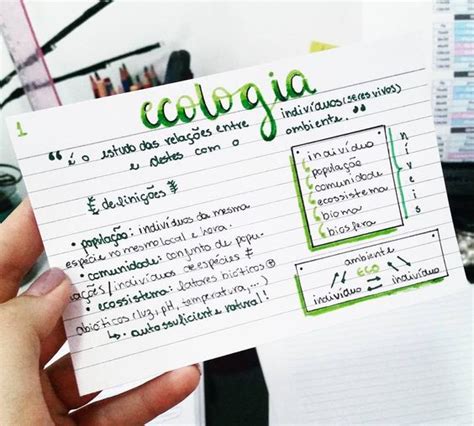 1
ecologia
“ é o estudo das relações entre indivíduos (seres vivos)
e destes com o ambiente. ”
definições
• população: indivíduos da mesma
espécie no mesmo local e hora.
• comunidade: conjunto de popu-
lações/indivíduos de espécies ≠
• ecossistema: fatores bióticos ⊕
abióticos (luz, pH, temperatura,...)
↳ autossuficiente natural!
• indivíduo
população
comunidade
ecossistema
bioma
biosfera
níveis
ambiente
ECO
indivíduo = indivíduo